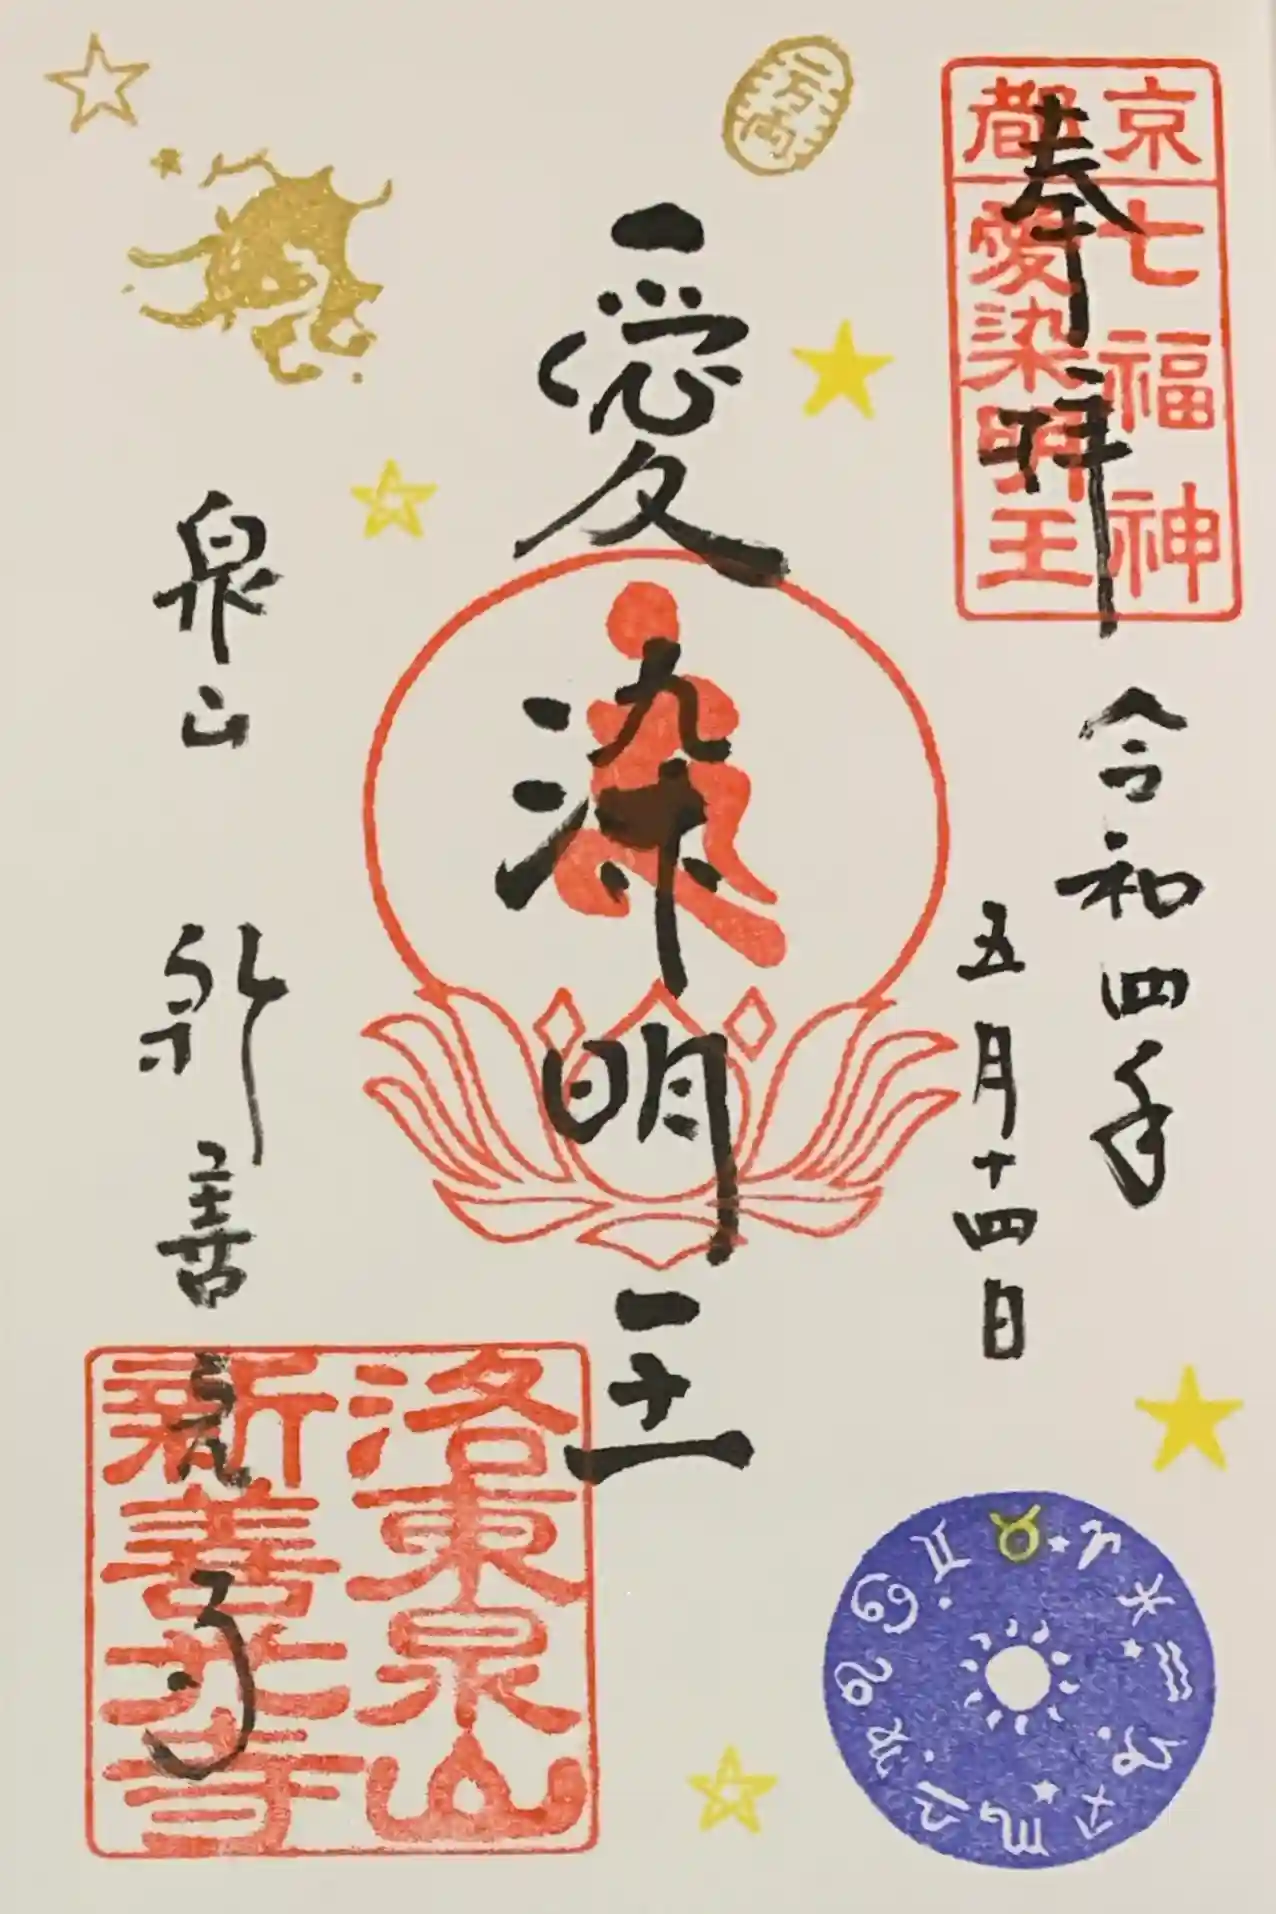 京都
七福神
愛染明王
奉拝
令和四年
五月十四日
愛染明王
泉山 新善光寺
洛東泉山
新善光寺